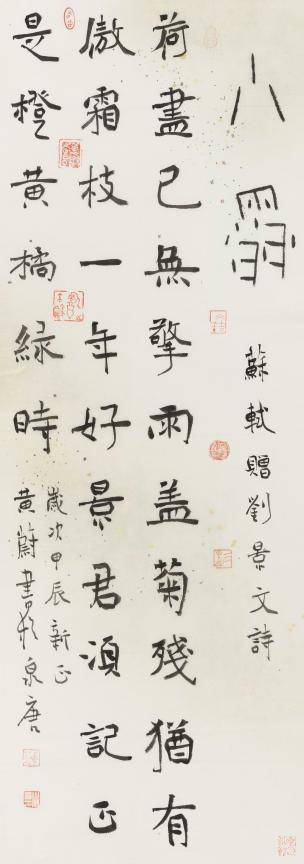 蘇軾贈劉景文詩
荷盡已無擎雨盖菊殘猶有
傲霜枝一年好景君湏記正
是橙黄橘緑時
歲次甲辰新正
黄蔚書於泉唐